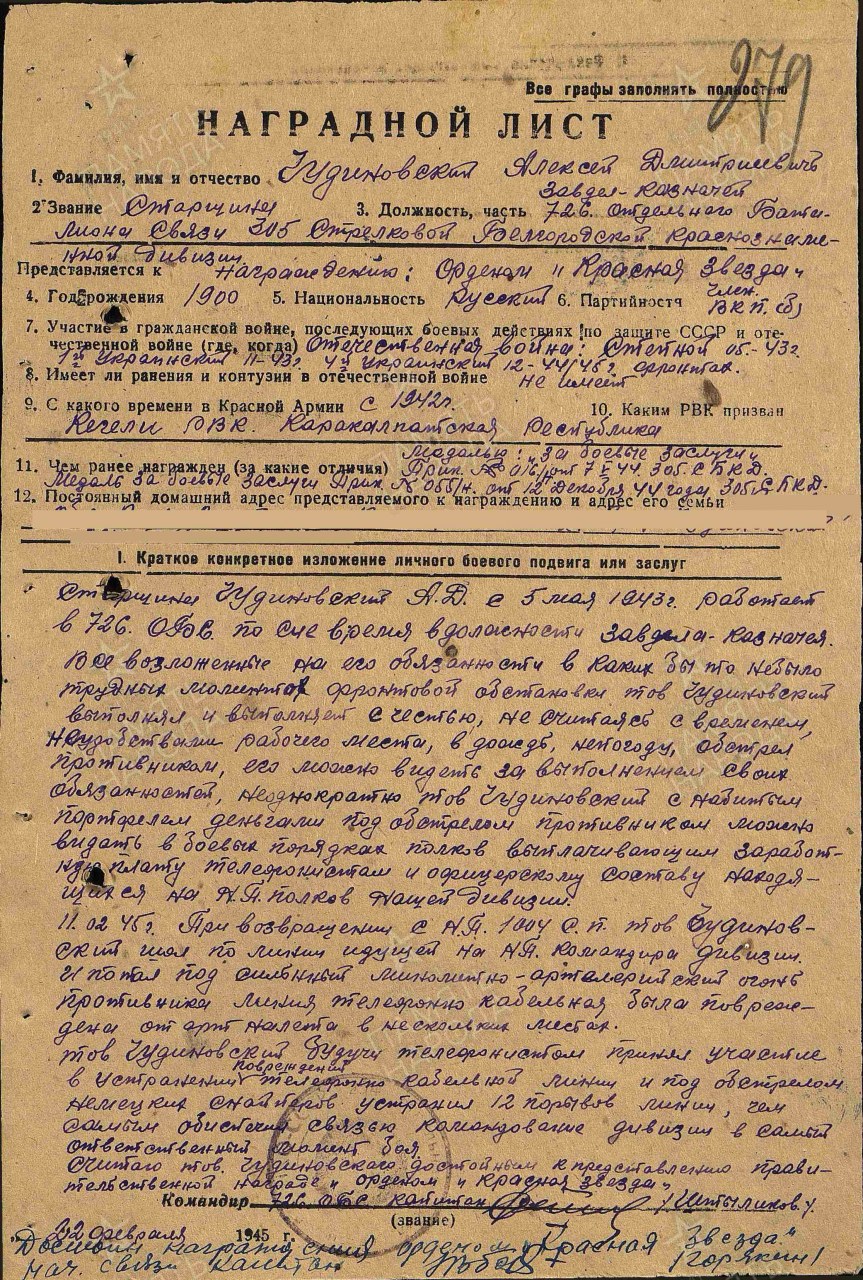 279
Все графы заполнять полностью
НАГРАДНОЙ ЛИСТ
1. Фамилия, имя и отчество Чудиновский Алексей Дмитриевич
2 Звание Старшина 3. Должность, часть Завдел-казначей
726. отдельного Бата-
лиона Связи 305 Стрелковой Белгородской краснознаме-
нной дивизии
Представляется к награждению: Орденом „Красная Звезда„
4. Год рождения 1900 5. Национальность Русский 6. Партийность член.
ВКП(б)
7. Участие в гражданской войне, последующих боевых действиях по защите СССР и оте-
чественной войне (где, когда) Отечественная война: Степной 05.-43г.
1й Украинский 11-43г. 4й Украинский 12-44/45г. фронтах.
8. Имеет ли ранения и контузии в отечественной войне не имеет
9. С какого времени в Красной Армии с 1942г. 10. Каким РВК призван
Кегели РВК. Каракалпатская Республика
11. Чем ранее награжден (за какие отличия) Медалью: за боевые заслуги
Прик. № 016/ от 7 44. 305 С.Б.К.Д.
Медаль за боевые заслуги Прик. № 055/н. от 12 Декабря 44 года 305 С.Б.К.Д.
12. Постоянный домашний адрес представляемого к награждению и адрес его семьи
I. Краткое конкретное изложение личного боевого подвига или заслуг
Старшина Чудиновский А.Д. с 5 мая 1943г. работает
в 726. ОБС по сие время в должности завдела-казначея.
Все возложенные на его обязанности в каких бы то небыло
трудных моментов фронтовой обстановки тов Чудиновский
выполнял и выполняет с честью, не считаясь с временем,
неудобствами рабочего места, в дождь, непогоду, обстрел
противником, его можно видеть за выполнением своих
обязанностей, неоднократно тов Чудиновский с набитым
портфелем деньгами под обстрелом противником можно
видать в боевых порядках полков выплачивающим заработ-
ную плату телефонистам и офицерскому составу находя-
щихся на Н.П. полков нашей дивизии.
11.02 45г. При возвращении с Н.П. 1004 с.п. тов Чудинов-
ский шол по линии идущей на НП. командира дивизии.
И попал под сильный минометно-артелерийский огонь
противника линия телефонно кабельная была повреж-
дена от арт налета в нескольких местах.
тов Чудиновский будучи телефонистом принял участие
в устранении повреждений телефонно кабельной линии и под обстрелом
немецких снайперов устранил 12 порывов линии, чем
самым обеспечил связью командование дивизии в самый
ответственный момент боя.
Считаю тов. Чудиновского достойным к представлению прави-
тельственной награде „орденом „Красная звезда„
Командир 726 ОБС капитан /Штыликов/
(звание)
22 февраля 1945 г.
Достоин награждения орденом „Красная Звезда."
Нач. связи капитан /Горякин/